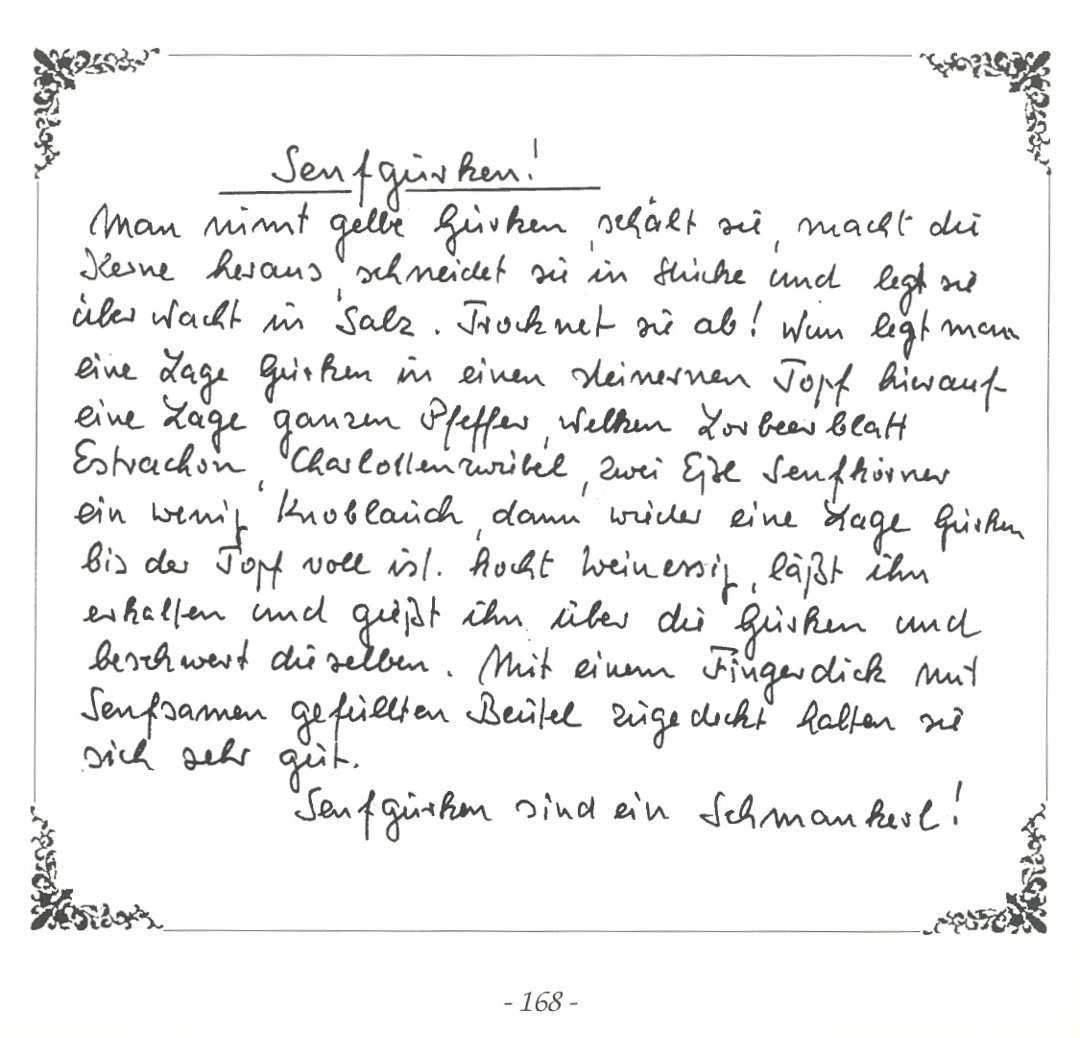 Senfgurken!
Man nimt gelbe Gurken, schält sie, macht die
Kerne heraus, schneidet sie in Stücke und legt sie
über Nacht in Salz. Trocknet sie ab! Nun legt man
eine Lage Gurken in einen steinernen Topf hierauf
eine Lage ganzen Pfeffer, Welken Lorbeerblatt
Estrachon, Charlottenzwibel, zwei Eßl Senfkörner
ein wenig Knoblauch, dann wieder eine Lage Gurken
bis der Topf voll ist. Kocht Weinessig, läßt ihn
erkalten und gießt ihn über die Gurken und
beschwert dieselben. Mit einem Fingerdick mit
Senfsamen gefüllten Beutel zugedeckt halten sie
sich sehr gut.
Senfgurken sind ein Schmankerl!
- 168 -